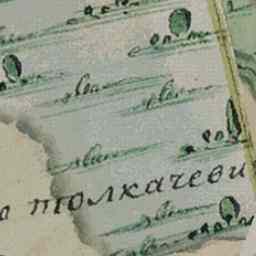 толкачеви